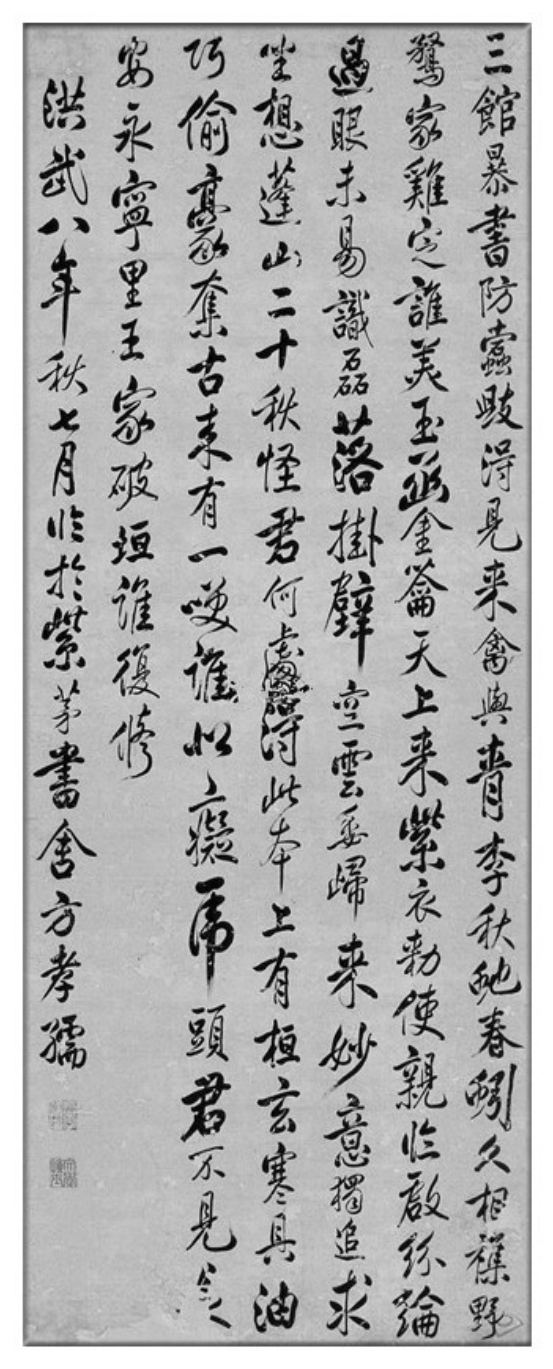 三館暴書防蠹毀得見来禽與青李秋蛇春蚓久相襍野
鶩家雞定誰美玉函金龠天上来紫衣勅使親臨啟紛綸
過眼未易識磊落掛壁空雲委歸来妙意獨追求
坐想蓬山二十秋怪君何處得此本上有桓玄寒具油
巧偷豪奪古来有一笑誰似癡虎頭君不見長
安永寧里王家破垣誰復修
洪武八年秋七月臨於紫茅書舍方孝孺